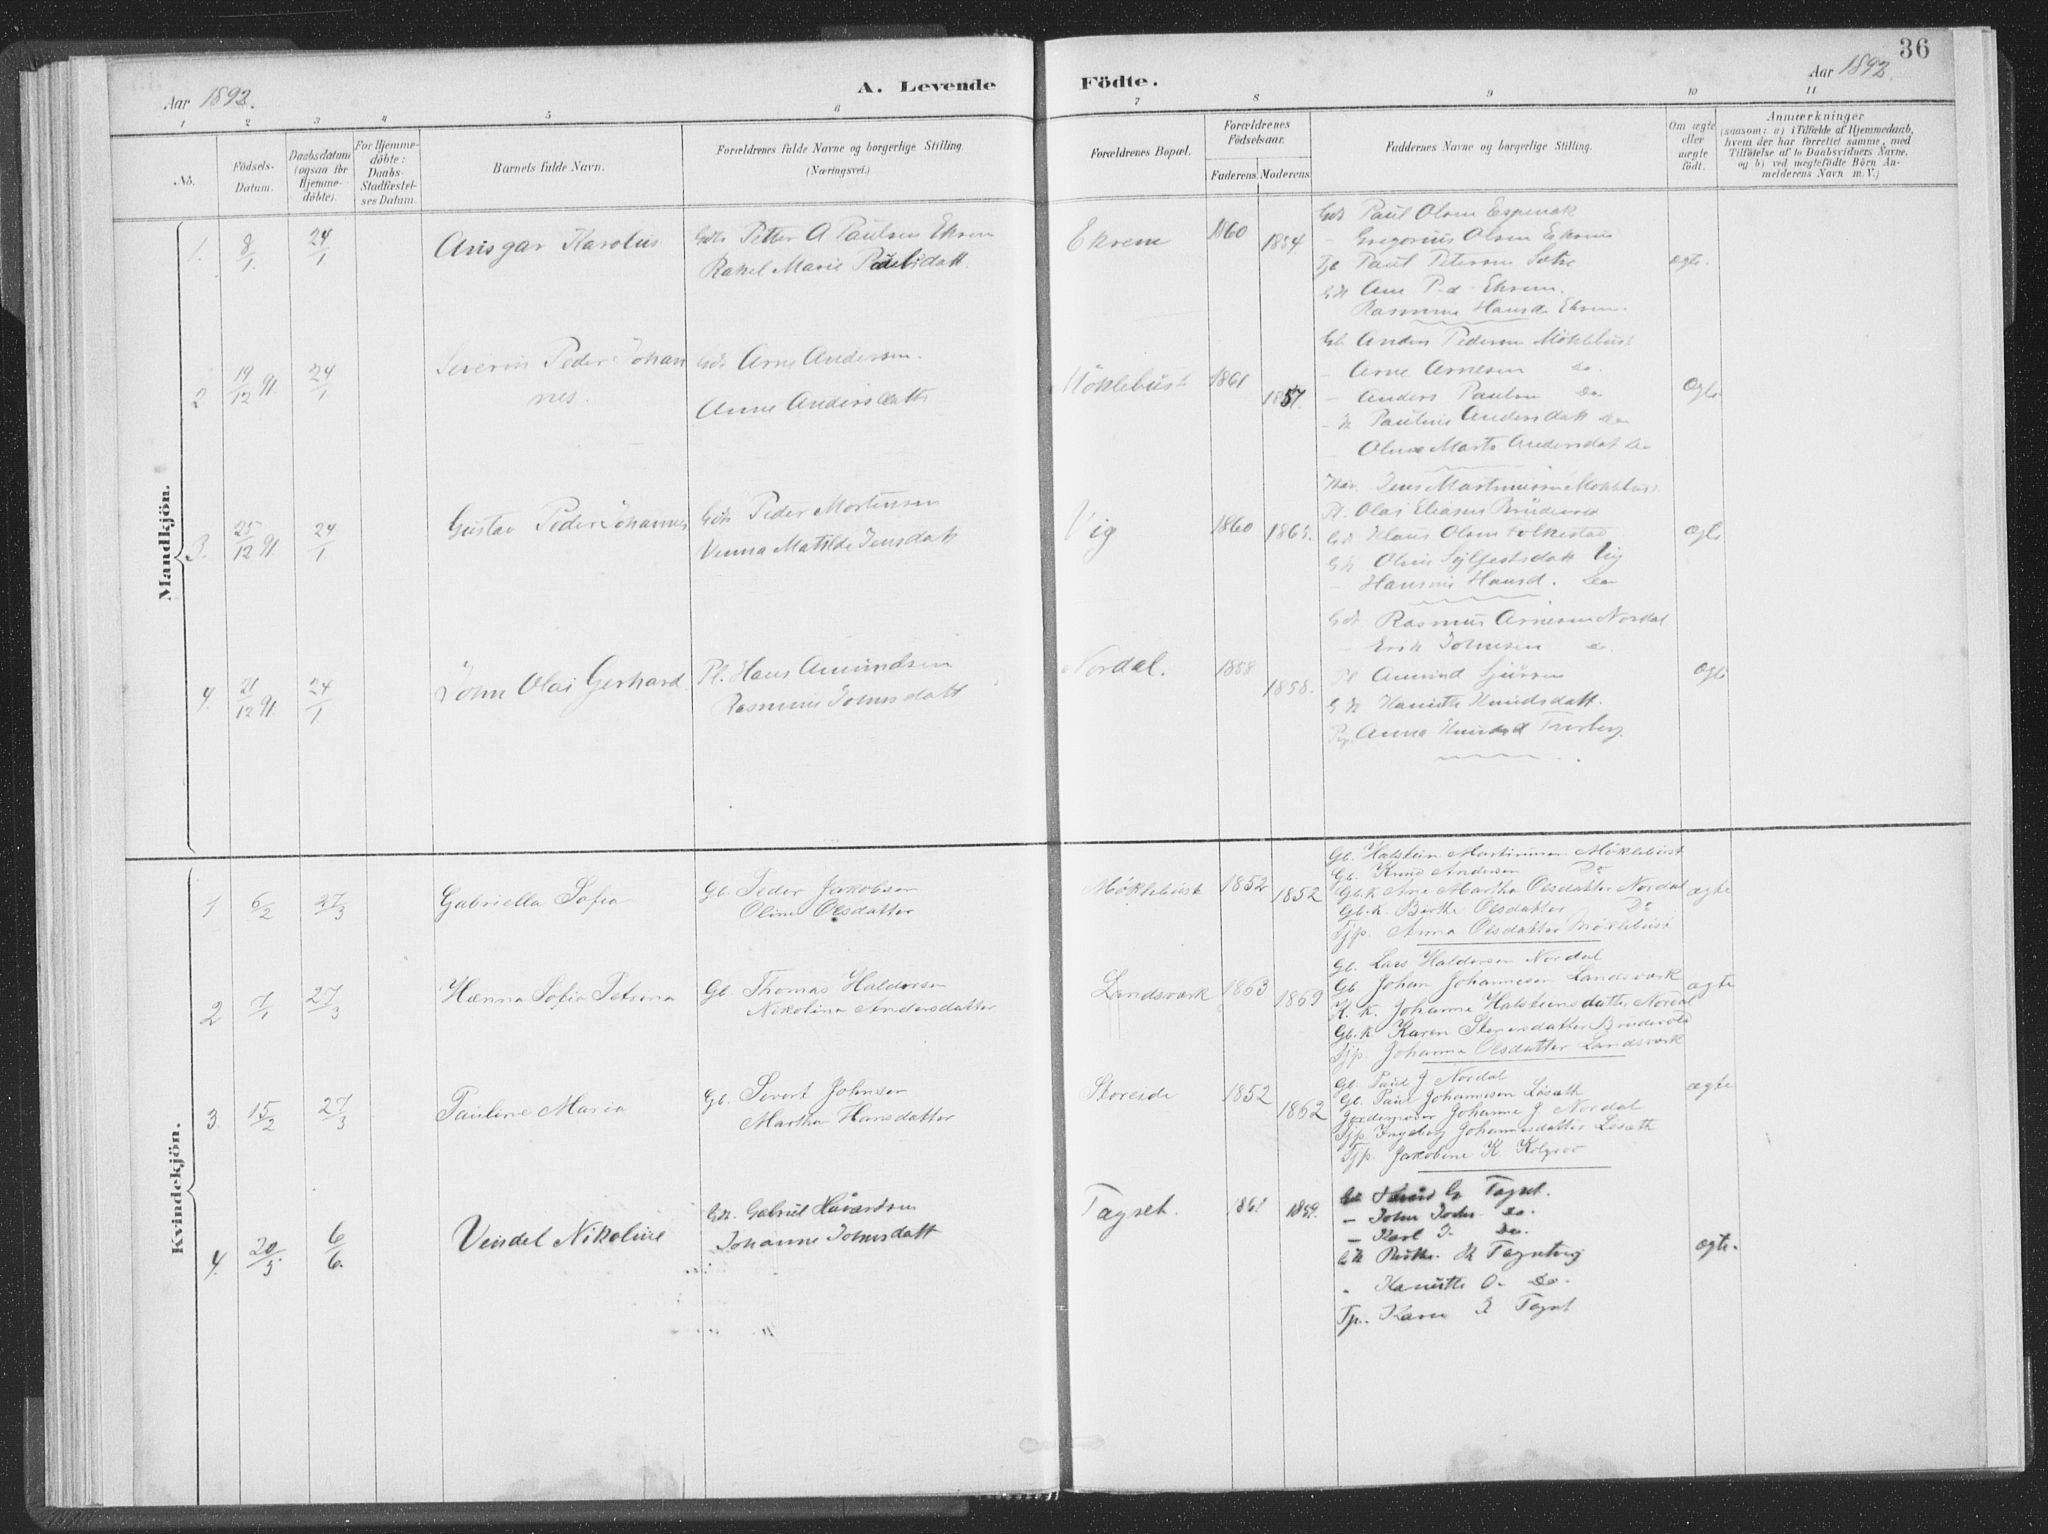 36
Aar 1892.
A. Levende Födte.
Aar 1892.
1 2 3 4 5 6 7 8 9 10 11
No.
Födsels-Datum.
Daabsdatum (ogsaa for Hjemme-döbte).
For Hjemme-döbte: Daabs-Stadfæstel-ses Datum.
Barnets fulde Navn.
Forældrenes fulde Navne og borgerlige Stilling.
(Næringsvei.)
Forældrenes Bopæl.
Forældrenes Födselsaar.
Faderens. Moderens.
Faddernes Navne og borgerlige Stilling.
Om ægte eller uægte födt.
Anmærkninger
(saasom: a) i Tilfælde af Hjemmedaab, hvem der har forrettet samme, med Tilföielse af to Daabsvidners Navne, og b) ved uægtefödte Börn An-melderens Navn m. V.)
Mandkjön.
1. 8/1. 24/1 Ansgar Karolus
Petter A Paulsen Ekrem
Rakel Marie Paulsdatt
Ekrem 1860 1854.
Paul Olsen Espenak
Gregorius Olsen Ekrem
Paul Petersen Sætre
Ane P-d. Ekrem.
Rasmine Hansd Ekrem.
ægte.
2 19/12 91. 24/1 Severin Peder Johan
nes.
Arne Andersen.
Anne Andersdatt
Möklebust 1861 1857.
Gb. Anders Pedersen Möklebust
- Arne Arnesen do.
- Anders Paulsen Do
- K Pauline Andersdatt do
Oline Marte Andersdat do
ægte
3. 25/12 91. 24/1 Gustav Peder Johannes
Peder Mortensen
Venna Matilde Jensdatt
Vig 1860 1865.
Jens Martinussen Möklebust
Olai Eliasen Brudevold
Klaus Olsen Folkestad
Oline Sylfestsdatt Vig
- Hansine Hansd. do
ægte
4. 21/12 91. 24/1 John Olai Gerhard
Pl. Hans Amundsen
Rasmine Johnsdatt
Nordal. 1858 1858.
Rasmus Arnesen Nordal
- Erik Johnsen do.
Pl Amund Sjursen
Hanitte Knudsdatt.
Anna Knudsd
ægte
Kvindekjön.
1 6/2 27/3 Gabriella Sofia
Gb. Peder Jakobsen
Oline Olsdatter
Möklebust 1852 1852
Gb. Halstein Martinusen Möklebust
Gb. Knud Andersen Do
Gb.K. Ane Martha Olsdatter Nordal
Gb.K. Birthe Olsdatter Do
Tjp. Anna Olsdatter Möklebust
ægte
2 7/1 27/3 Hanna Sofia Petrina
Gb. Thomas Haldorsen
Nikolina Andersdatter
Landsværk 1863 1869
Gb. Lars Haldorsen Nordal
Gb. Johan Johannesen Landsværk
K. K. Johanne Halsteinsdatter Nordal
Gb.K Karen Steinersdatter Brudevold
Tjp. Johanna Olsdatter Landsværk
ægte
3 15/2 27/3 Pauline Maria
Gb. Sivert Johnsen
Martha Hansdatter
Storeide 1852 1862
Gb. Paul J Nordal
Gb. Paul Johannesen Löseth
Jordemoder Johanne J Nordal
Tjp. Ingeborg Johannesdatter Löseth
Tjp. Jakobine K.
ægte
4. 20/5 6/6. Vendel Nikoline
Gabriel Haavardsen
Johanne Johnsdatt
Tagset. 1861 1859.
Knud G Tagset.
- John do.
- Karl J. Do.
- Hanitte O- do.
Tp. Karen Tagset
ægte.